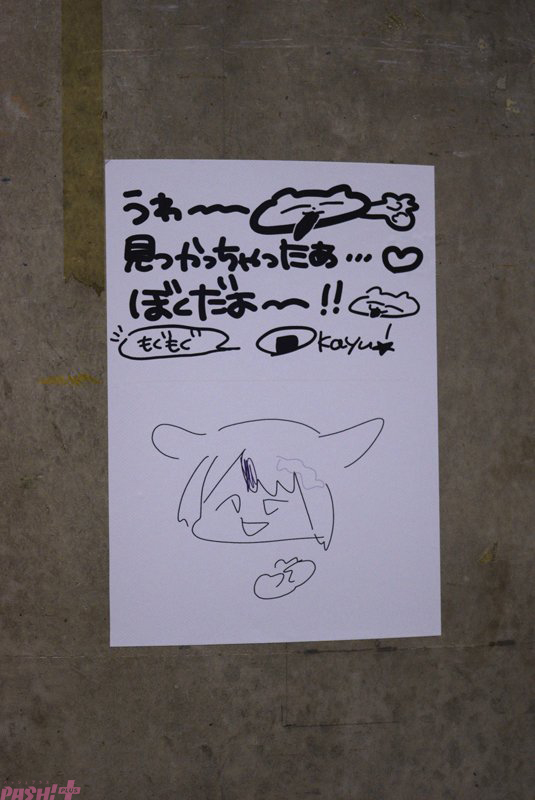 うわ〜〜
見つかっちゃったあ…♡
ぼくだよ〜!!
もぐもぐ
kayu
PASH! PLUS